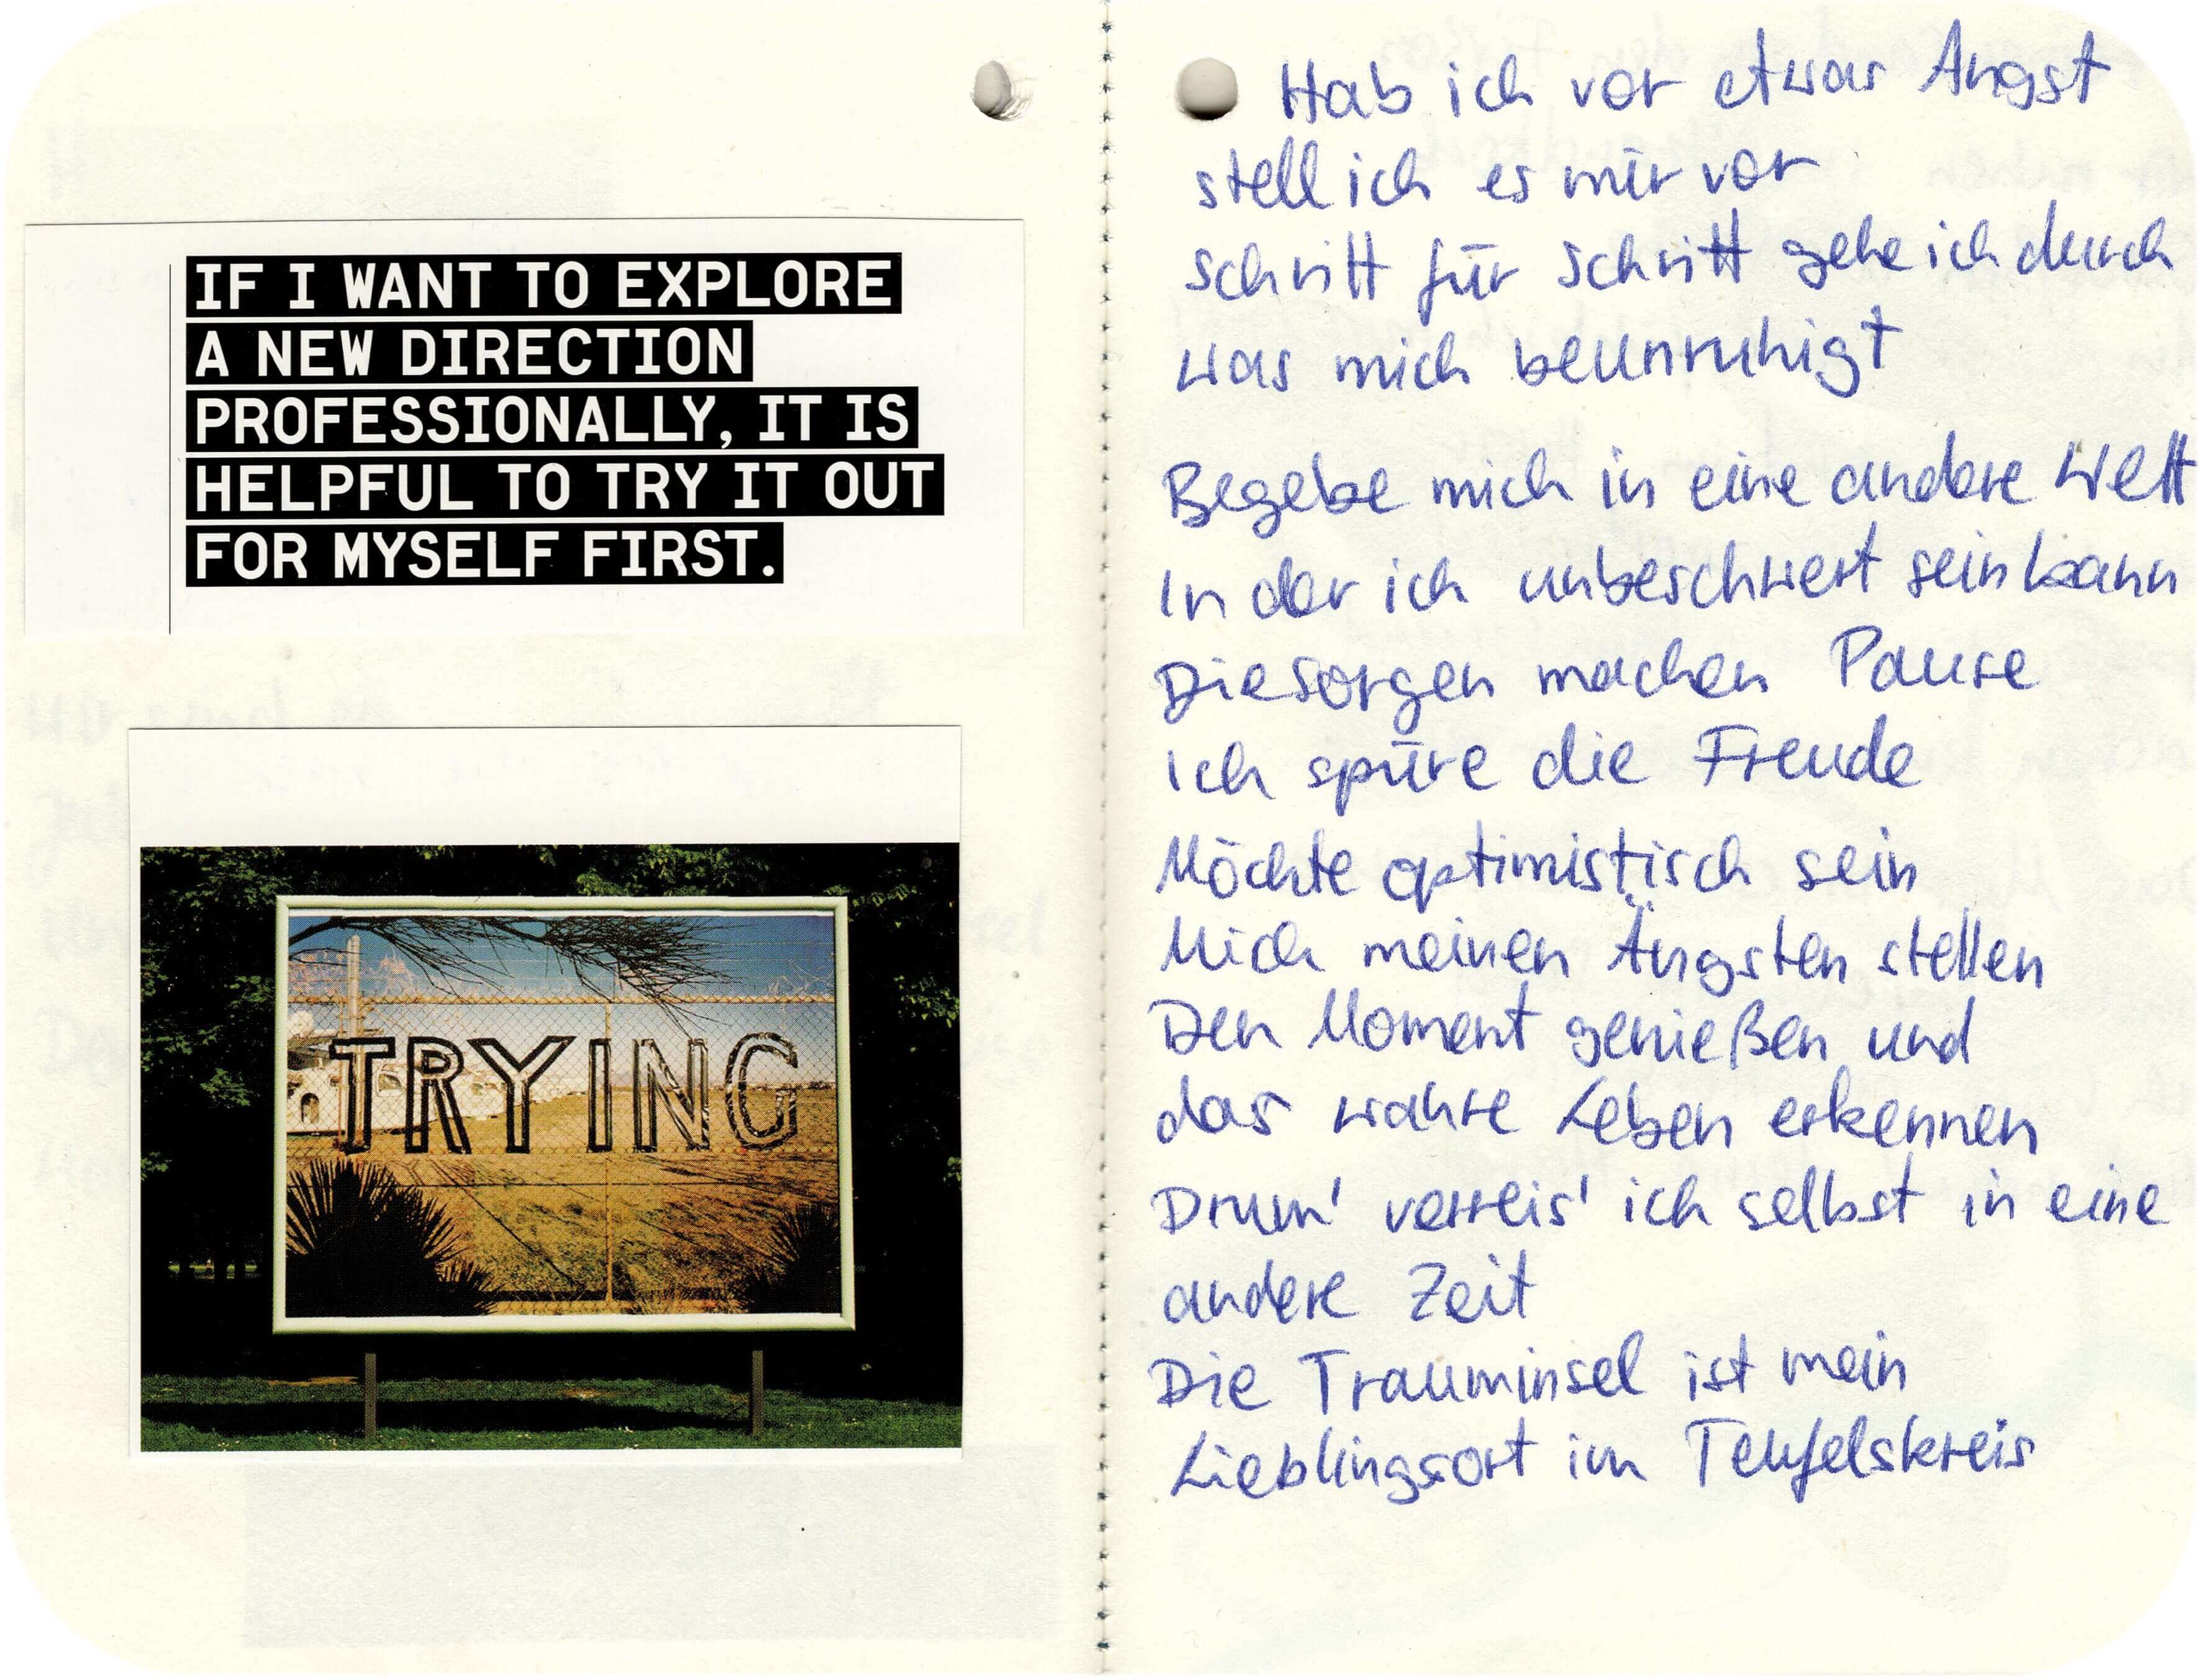 IF I WANT TO EXPLORE
A NEW DIRECTION
PROFESSIONALLY, IT IS
HELPFUL TO TRY IT OUT
FOR MYSELF FIRST.
TRYING
Hab ich vor etwas Angst
stell ich es mir vor
Schritt für Schritt gehe ich durch
was mich beunruhigt
Begebe mich in eine andere Welt
In der ich unbeschwert sein kann
Die Sorgen machen Pause
Ich spüre die Freude
Möchte optimistisch sein
Mich meinen Ängsten stellen
Den Moment genießen und
das wahre Leben erkennen
Drum' verreis' ich selbst in eine
andere Zeit
Die Trauminsel ist mein
Lieblingsort im Teufelskreis